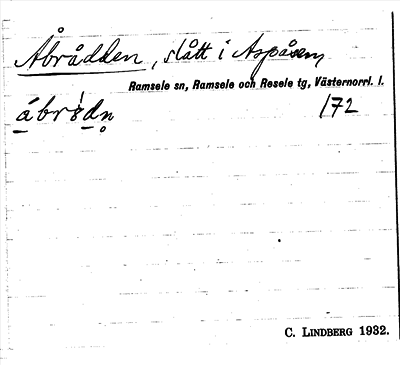 Åbrådden, slått i Aspåsen,
Ramsele sn, Ramsele och Resele tg, Västernorrl. l.
172
C. LINDBERG 1932.